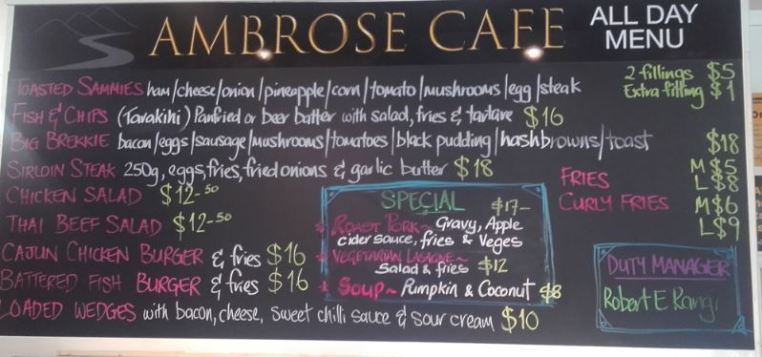 AMBROSE CAFE
ALL DAY MENU
TOASTED SAMMIES ham/cheese/onion/pineapple/corn/tomato/mushrooms/egg/steak 2 fillings $5
Extra filling $1
FISH & CHIPS (Tarakihi) Panfried or beer batter with salad, fries & tartare $16
BIG BREKKIE bacon/eggs/sausage/mushrooms/tomatoes/black pudding/hashbrowns/toast $18
SIRLOIN STEAK 250g, eggs, fries, fried onions & garlic butter $18
FRIES M $5
L $8
CURLY FRIES M $6
L $9
CHICKEN SALAD $12-50
THAI BEEF SALAD $12-50
CAJUN CHICKEN BURGER & fries $16
BATTERED FISH BURGER & fries $16
LOADED WEDGES with bacon, cheese, sweet chilli sauce & sour cream $10
SPECIAL $17-
ROAST PORK~ Gravy, Apple
cider sauce, fries & Veges
VEGETARIAN LASAGNE~
Salad & fries $12
Soup~ Pumpkin & Coconut $8
DUTY MANAGER
Robert E Rangi